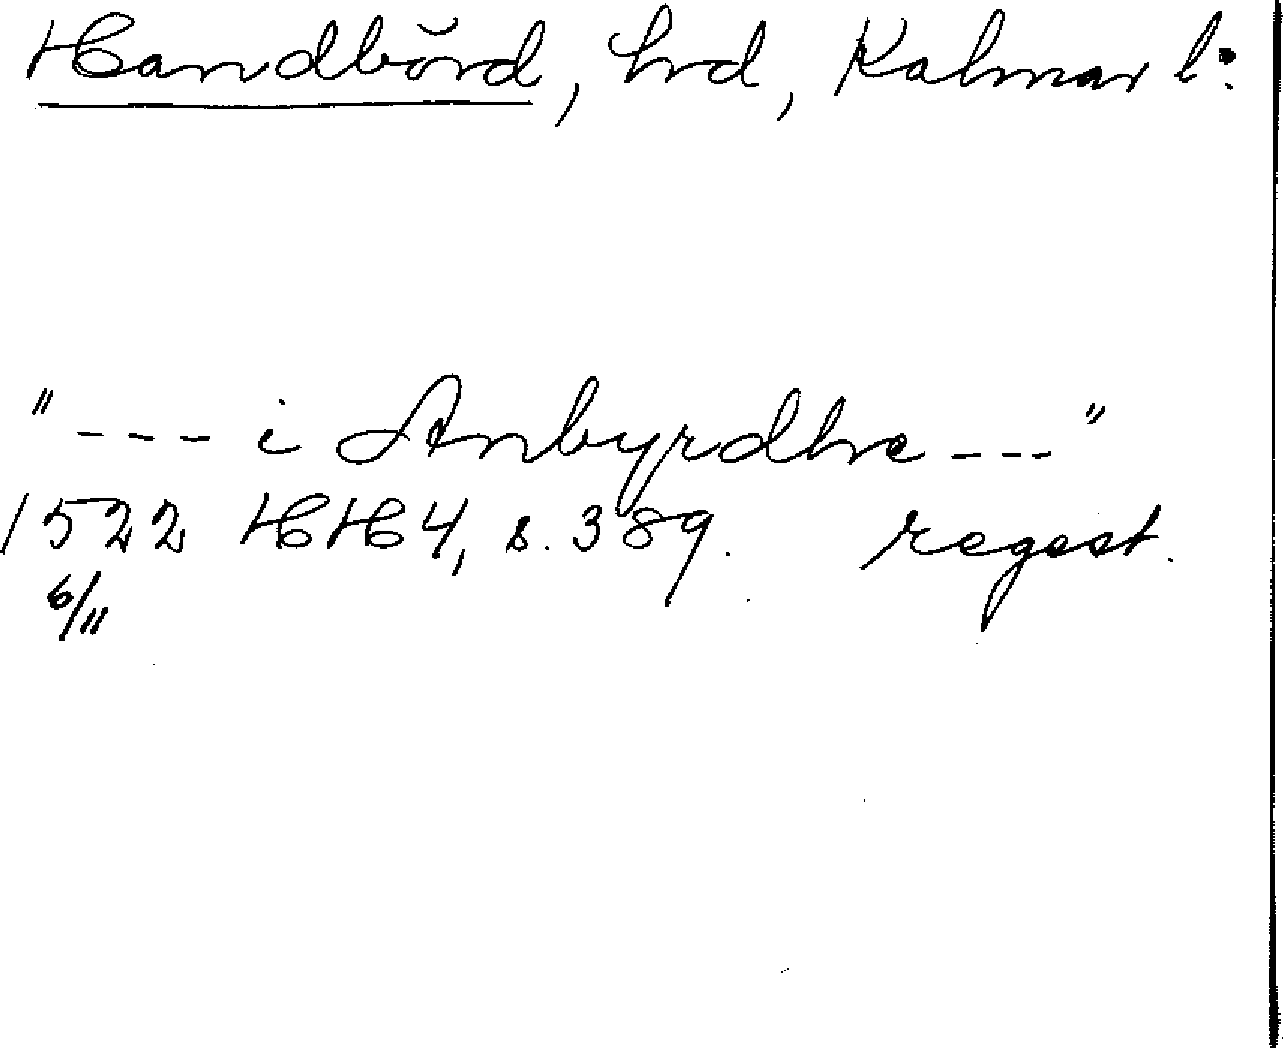 Handbörd, hrd, Kalmar l:
"--- i Anbyrdhe ---"
1522 HH 4, s. 389. regest.
6/11